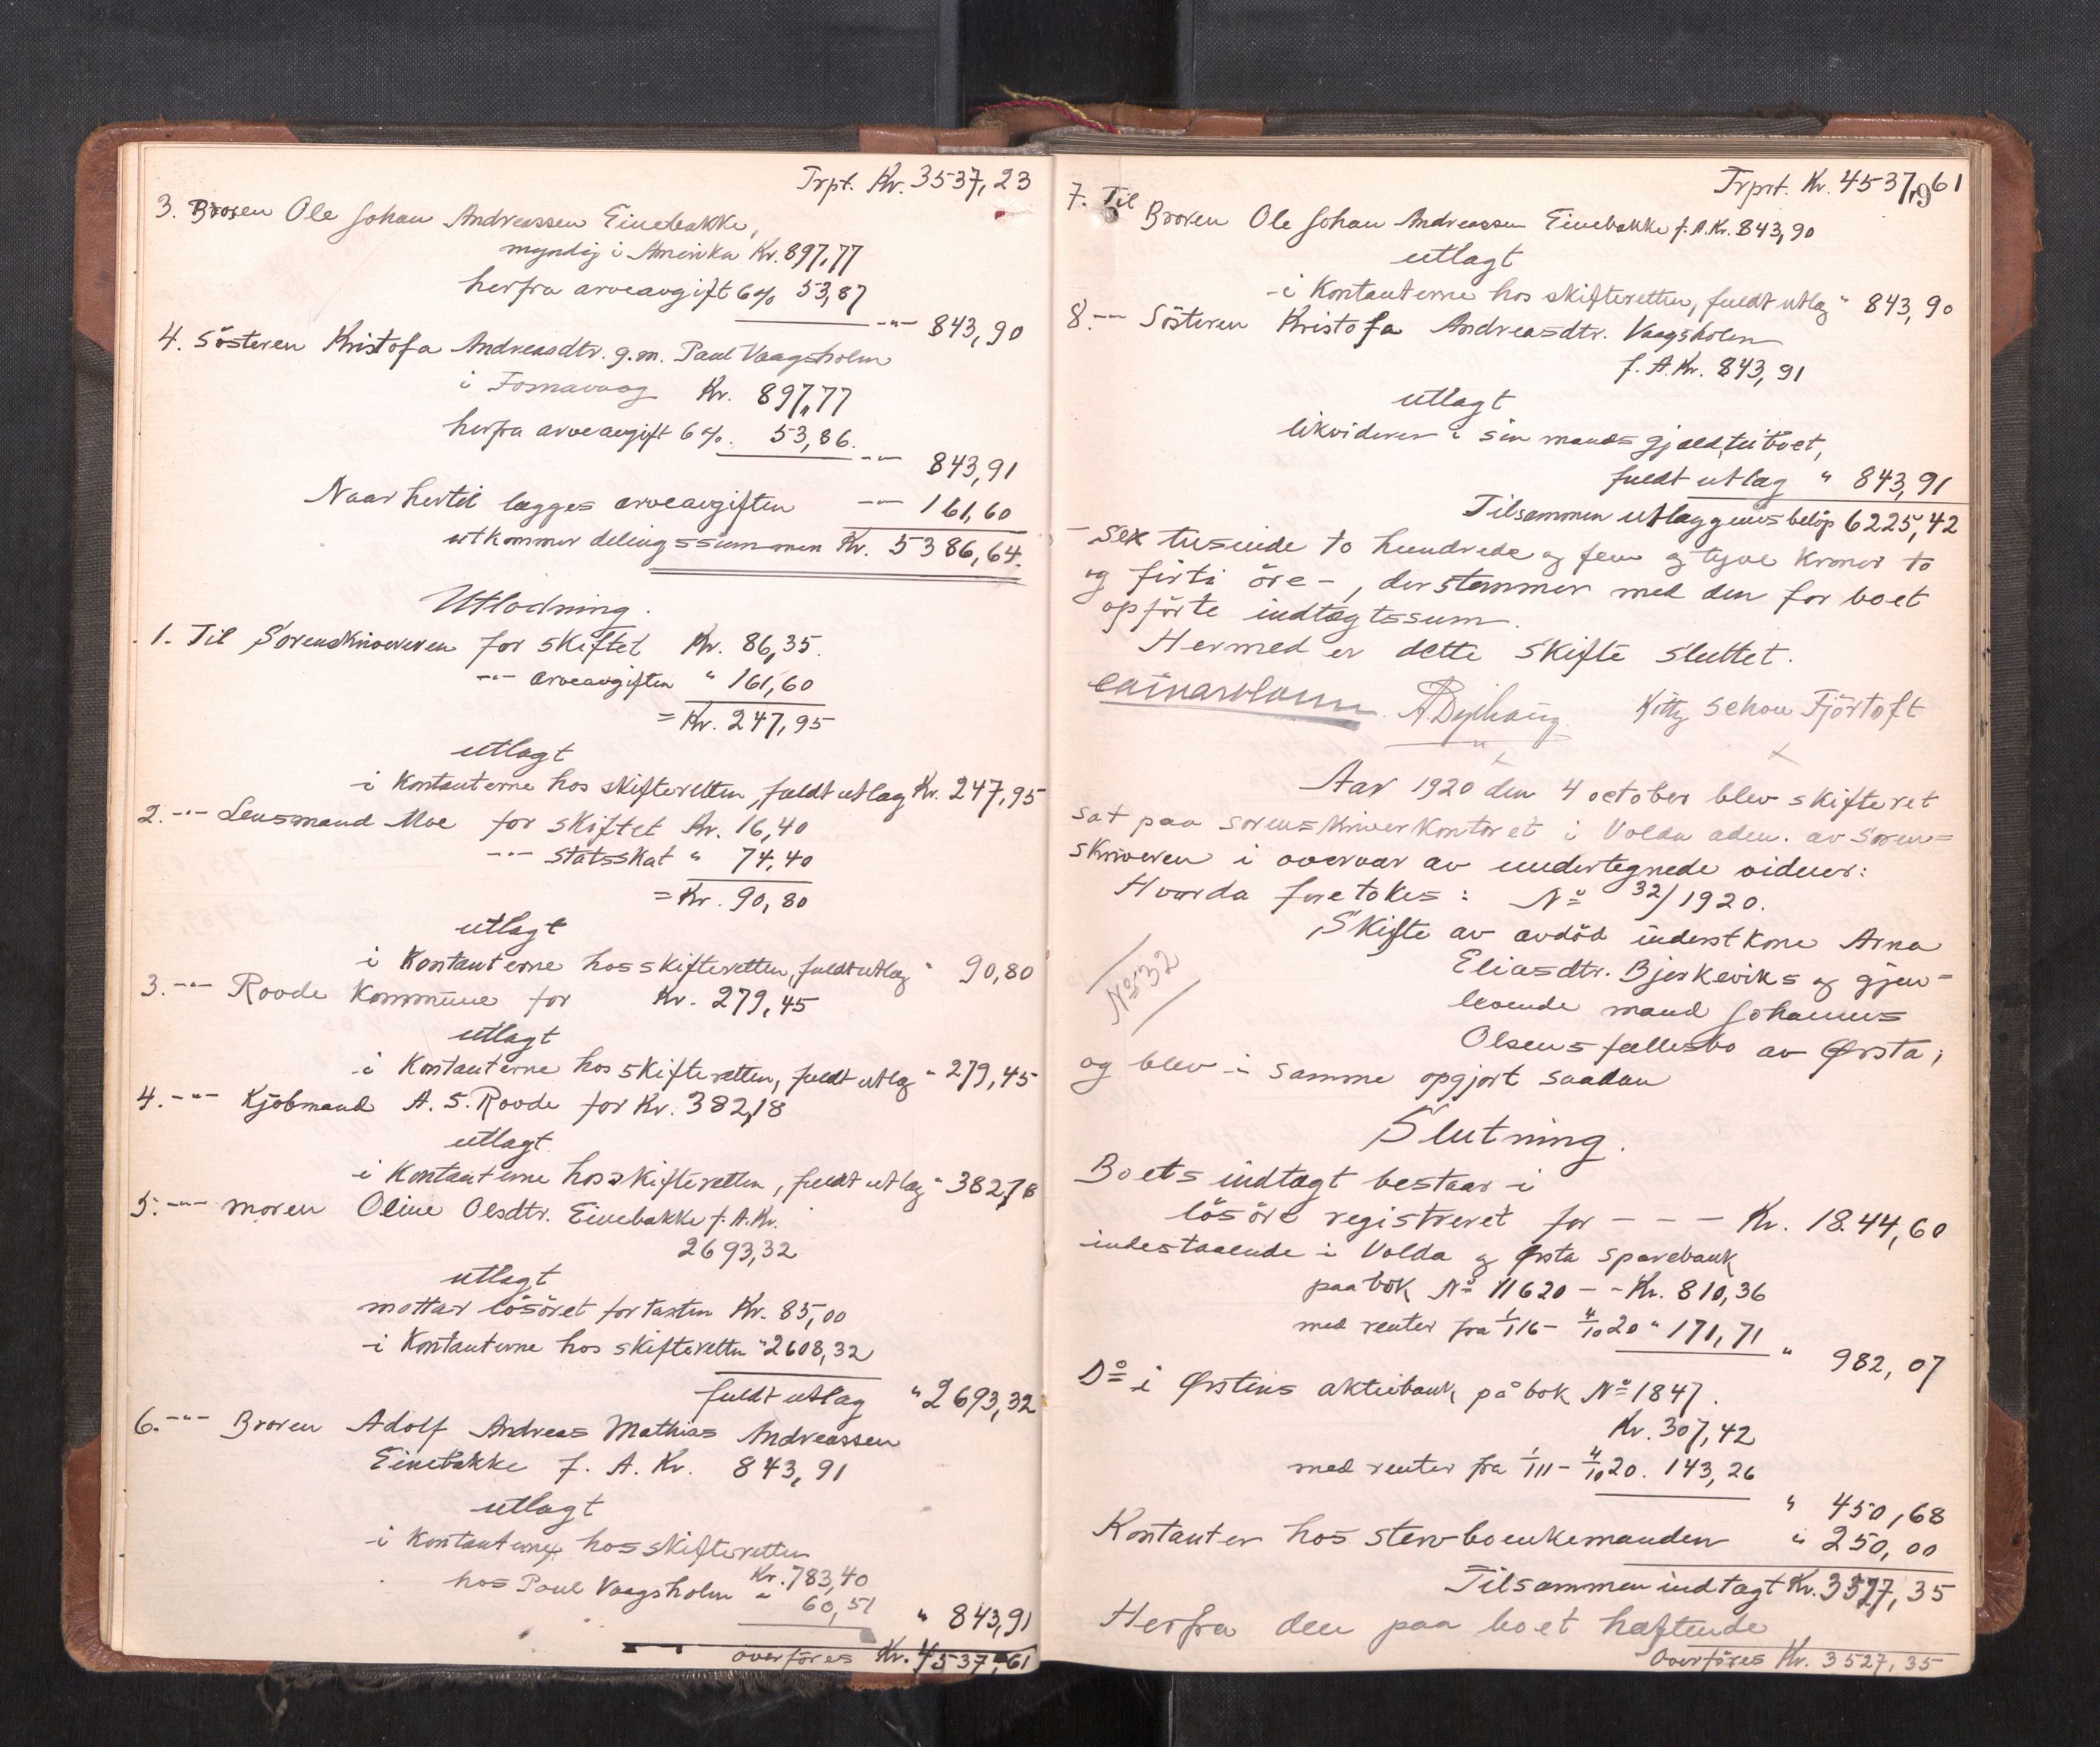 Trpt. Kr. 3537,23
3. Broren Ole Johan Andreassen Einebakke,
myndig i Amerika Kr. 897,77
herfra arveavgift 6% 53,87
-"- 843,90
4. Søsteren Kristofa Andreasdtr. g.m. Paul Vaagsholm
i Fosnavaag Kr. 897,77
herfra arveavgift 6%. 53,86.
-"- 843,91
Naar hertil lægges arveavgiften -"- 161,60
utkommer delingssummen Kr. 5386,64.
Utlodning.
1. Til Sorenskriveren for skiftet Kr. 86,35.
-"- arveavgiften " 161,60
= Kr. 247,95
utlagt
i Kontanterne hos skifteretten, fuldt utlæg Kr. 247,95
2. -"- Lensmand Moe for skiftet Kr. 16,40
-"- statsskat " 74,40
= Kr. 90,80
utlagt
i Kontanterne hos skifteretten, fuldt utlæg " 90,80
3. -"- Rovde Kommune for Kr. 279,45
utlagt
i Kontanterne hos skifteretten, fuldt utlæg " 279,45
4. -"- Kjøbmand A. S. Rovde for Kr. 382,18
utlagt
i Kontanterne hos skifteretten, fuldt utlæg " 382,18
5. -"- moren Oline Olsdtr. Einebakke f. A. Kr.
2693,32
utlagt
mottar løsøret for taxten Kr. 85,00
i Kontanterne hos skifteretten " 2608,32
fuldt utlæg " 2693,32
6. -"- Broren Adolf Andreas Mathias Andreassen
Einebakke f. A. Kr. 843,91
utlagt
i Kontanterne hos skifteretten
Kr. 783,40
hos Paul Vaagsholm " 60,51
" 843,91
overføres Kr. 4537,61
Trprt. Kr. 4537,61
7. Til Broren Ole Johan Andreassen Einebakke f. A. Kr. 843,90
utlagt
i Kontanterne hos skifteretten, fuldt utlæg " 843,90
8. -"- Søsteren Kristofa Andreasdtr. Vaagsholm
f. A. Kr. 843,91
utlagt
likviderer i sin mands gjæld til boet,
fuldt utlæg " 843,91
Tilsammen utlæggenes beløp 6225,42
- Sex tusinde to hundrede og fem og tyve Kroner to
og firti øre -, der stemmer med den for boet
opførte indtægtssum.
Hermed er dette skifte sluttet.
Kitty Schou Fjørtoft
Aar 1920 den 4 october blev skifteret
sat paa sorenskriverkontoret i Volda adm. av Soren=
skriveren i overvær av undertegnede vidner:
Hvorda foretokes: No 32/1920.
No 32
Skifte av avdød inderstkone Arna
Eliasdtr. Bjerkeviks og gjen=
levende mand Johannes
Olsens fællesbo av Ørsta;
og blev i samme opgjort saadan
Slutning.
Boets indtægt bestaar i
løsøre registreret for - - - Kr. 1844,60
indestaaende i Volda og Ørsta sparebank
paa bok No 11620 - - Kr. 810,36
med renter fra 1/1 16 - 4/10 20 " 171,71
" 982,07
Do i Ørstens aktiebank på bok No 1847.
Kr. 307,42
med renter fra 1/1 11 - 4/10 20. 143,26
" 450,68
Kontanter hos stervboenkemanden " 250,00
Tilsammen indtægt Kr. 3527,35
Herfra den paa boet hæftende
Overføres Kr. 3527,35